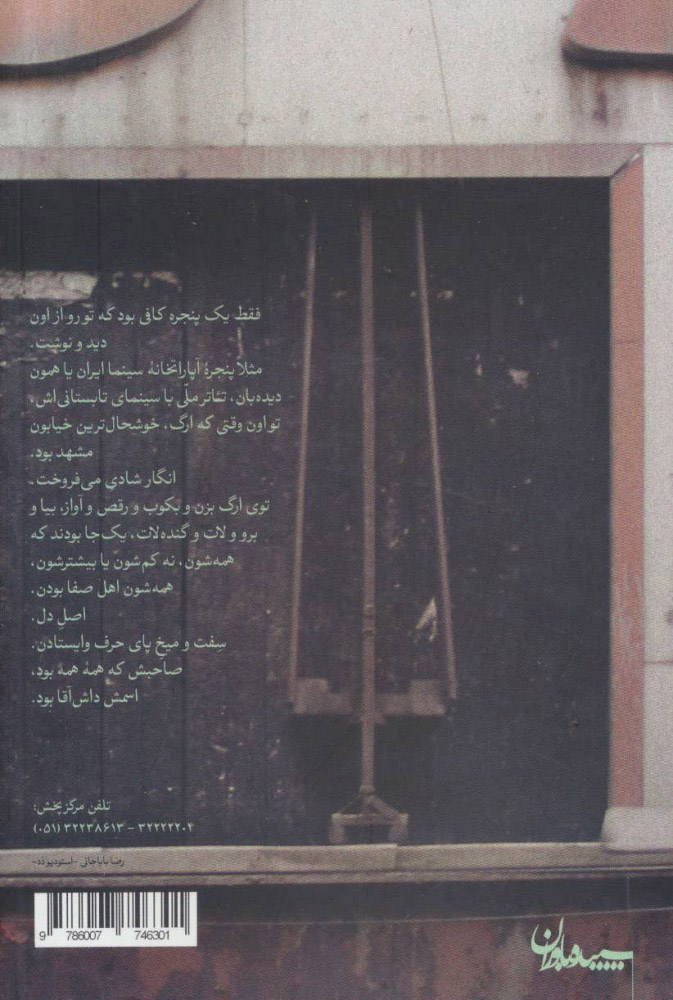 فقط یک پنجره کافی بود که تو رو از اون
دید و نوشت.
مثلاً پنجرهٔ آپاراتخانهٔ سینما ایران یا همون
دیده‌بان، تئاتر ملّی با سینمای تابستانی‌اش،
تو اون وقتی که ارگ، خوشحال‌ترین خیابون
مشهد بود.
انگار شادی می‌فروخت.
توی ارگ بزن و بکوب و رقص و آواز، بیا و
برو و لات و گنده‌لات، یک‌جا بودند که
همه‌شون، نه کم‌شون یا بیشترشون،
همه‌شون اهل صفا بودن.
اصلِ دل.
سِفت و میخ پای حرف وایستادن.
صاحبش که همهٔ همهٔ بود،
اسمش داش‌آقا بود.
تلفن مرکز پخش:
(۰۵۱) ۳۲۲۳۸۶۱۳ - ۳۲۲۲۲۲۰۴
رضا باباجانی -استودیو دَد-
9 786007 746301
سپیده‌باوران